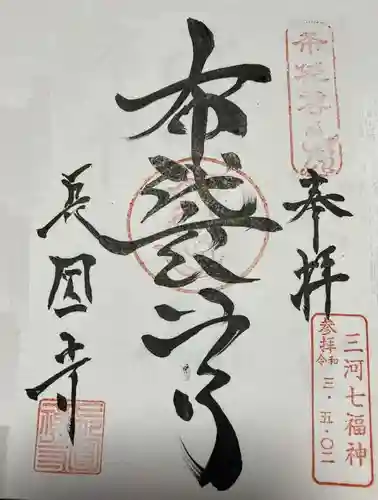 布袋尊
奉拝
三河七福神
参拝 令和 三・五・〇二
布袋尊
長圓寺